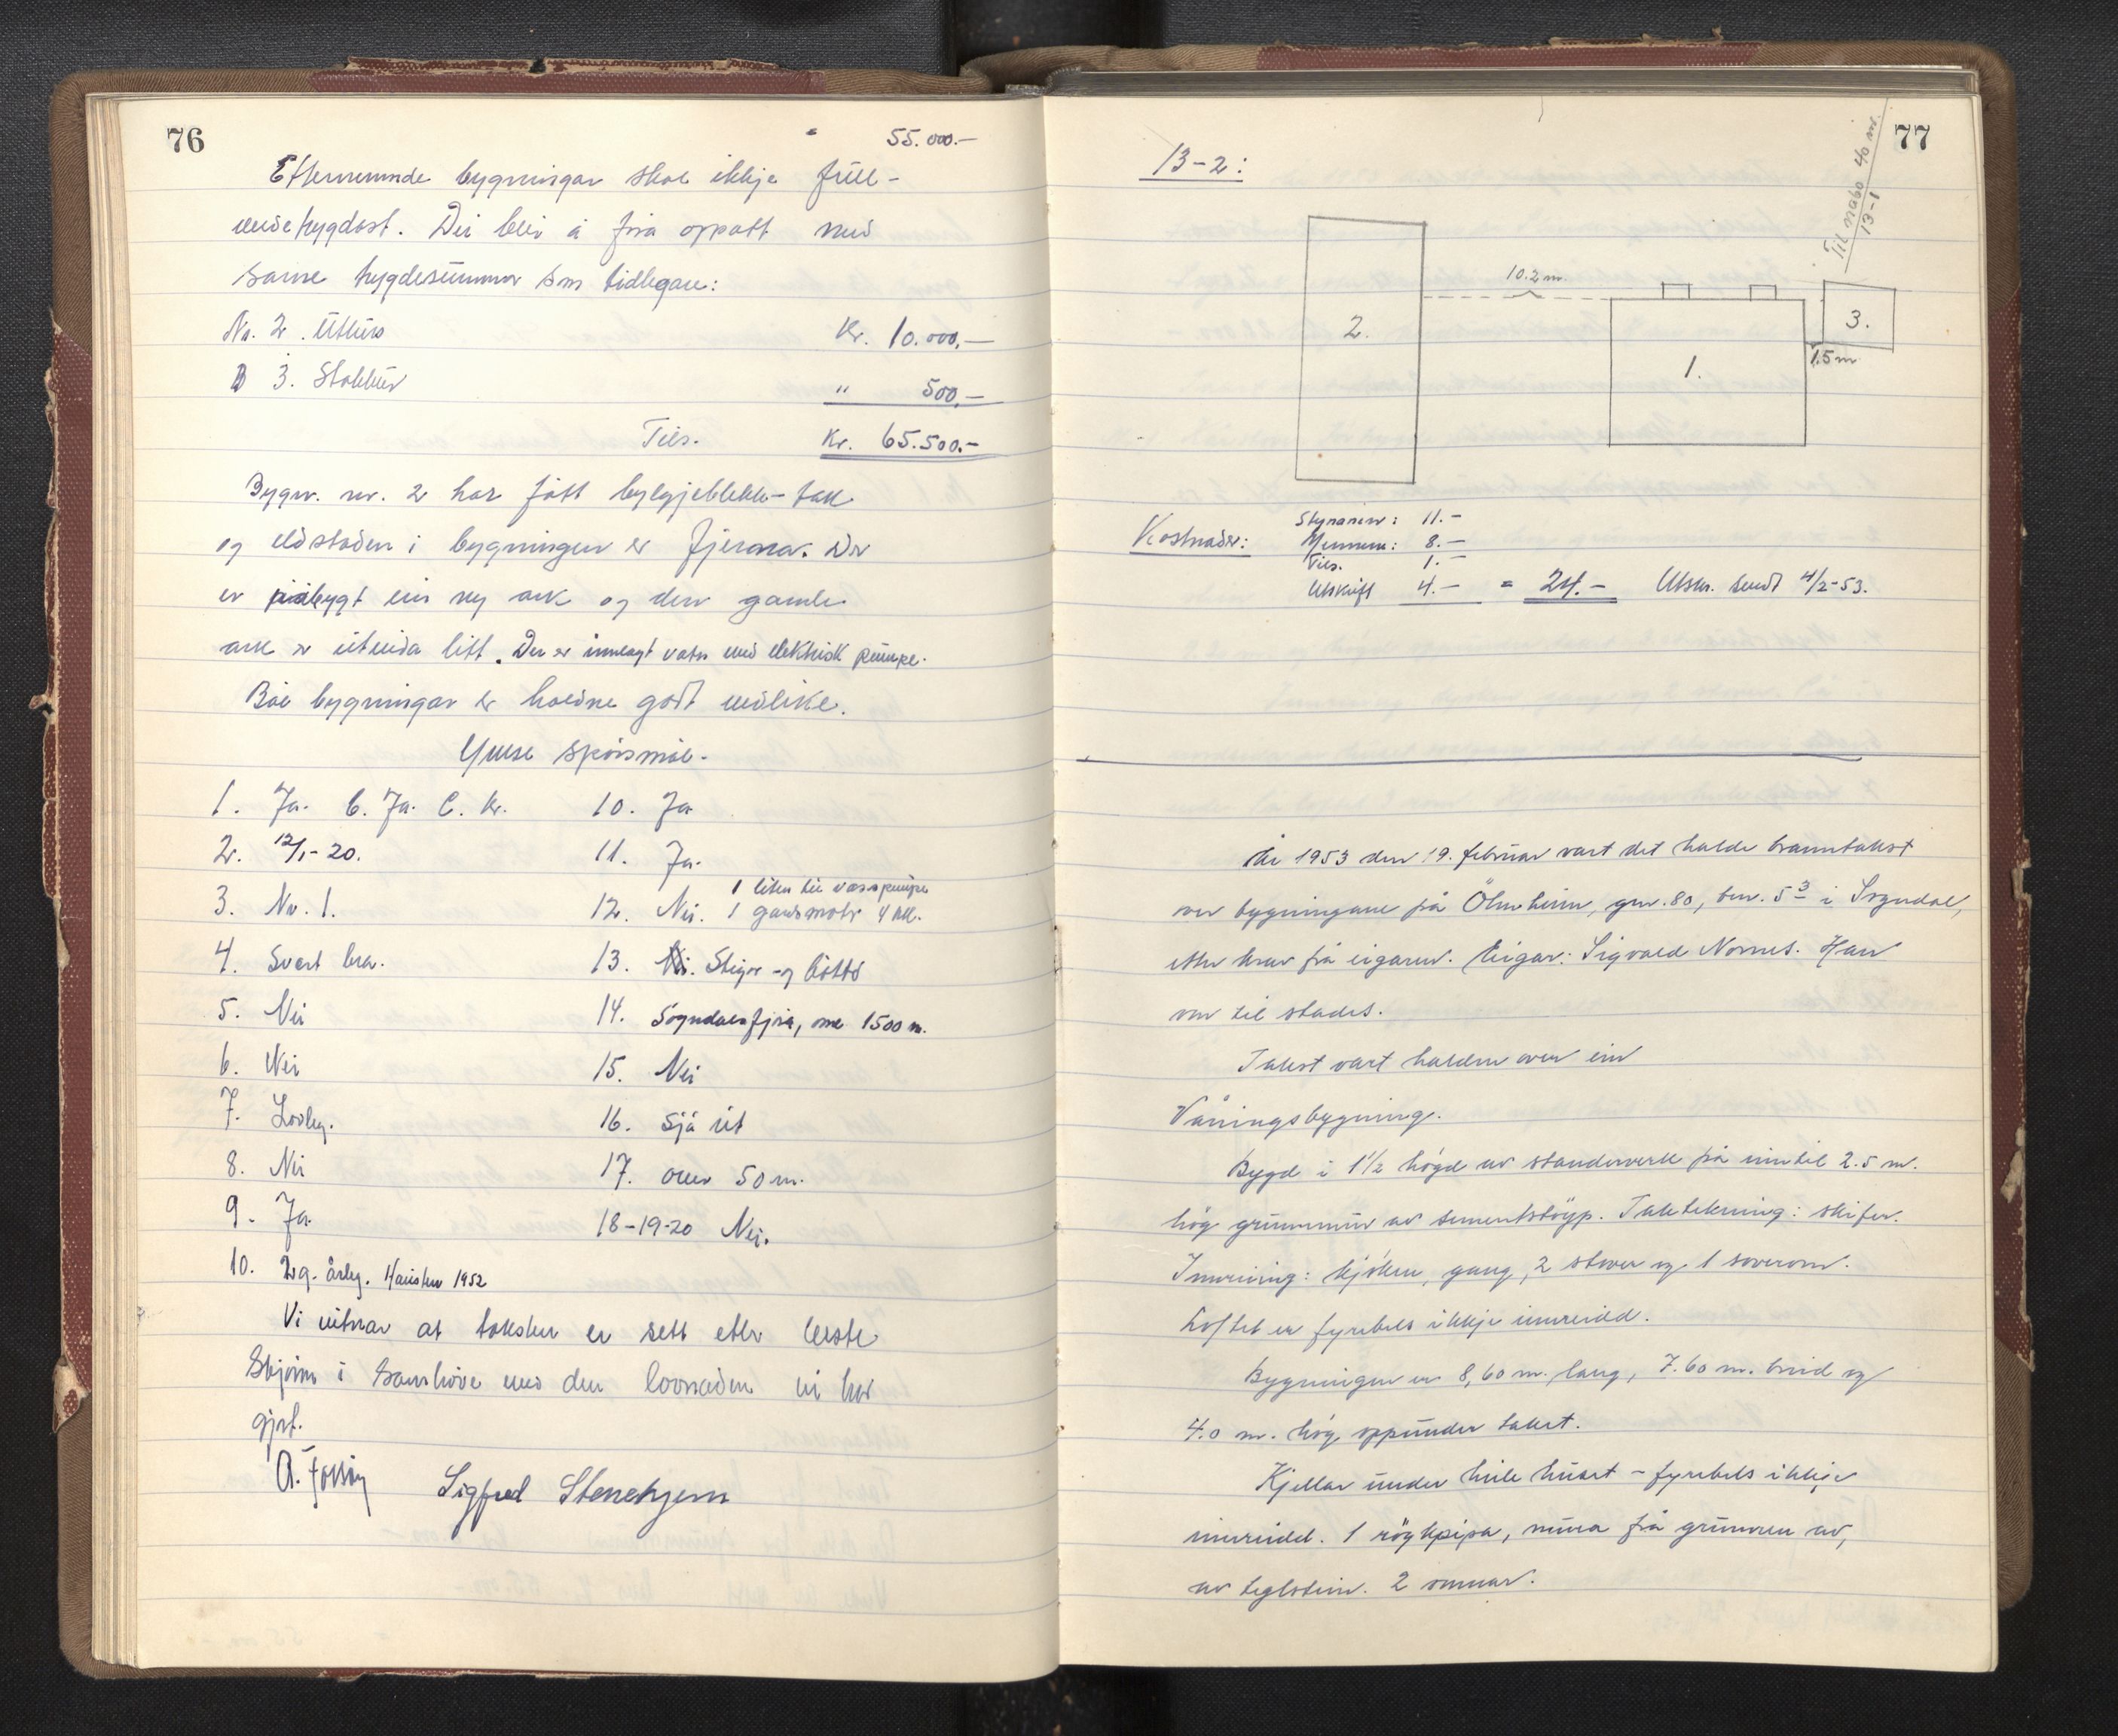 76
55.000.-
Etternemnde bygningar skal ikkje full-
verdetrygdast. Dei blir å føra oppatt med
same trygdesummar som tidlegare:
Nr. 2. Uthus Kr. 10.000,-
" 3. Stakkur " 500,-
Tils. Kr. 65.500.-
Bygn. nr. 2 har fått bylgjeblekk-tak
og eldstaden i bygningen er fjerna. Der
er påbygt ein ny ark og den gamle
ark er utvida litt. Der er innlagt vatn med elektrisk pumpe.
Båe bygningar er haldne godt vedlike.
Ymse spörsmål.
1. Ja. b. Ja. C. Kr.
2. 12/1-20.
3. Nr. 1.
4. Svært bra.
5. Nei
6. Nei
7. Lovleg.
8. Nei
9. Ja.
10. 2 g. årleg. Hausten 1952
10. Ja
11. Ja.
12. Nei. 1 liten til vasspumpe
1 gardsmotor 4 HK.
13. Stigar og bötte
14. Sogndalsfjøra, om 1500 m.
15. Nei
16. Sjå ut
17. over 50 m.
18-19-20 Nei.
Vi vitnar at taksten er sett etter beste
skjönn i samhöve med den lovnaden vi har
gjort.
Sigfred Stenehjem
77
13-2:
Til nabo 40 m.
13-1
2.
10.2 m
1.
3.
1.5 m
Kostnader:
Skjönnsm: 11.-
Mennene: 8.-
Tils. 1.-
Utskrift 4.- = 24.- Utskr. sendt 4/2-53.
År 1953 den 19. februar vart det halde branntakst
over bygningane på Ölmheim, gnr. 80, bnr. 53 i Sogndal,
etter krav frå eigaren. Eigar: Sigvald Nornes. Han
var til stades.
Takst vart halden over ein
Våningsbygning.
Bygd i 1½ högd av standerverk på inntil 2.5 m.
hög grunnmur av sementstöyp. Taktekning: skifer.
Innreiing: kjöken, gang, 2 stover og 1 soverom.
Loftet er fyrebels ikkje innreidd.
Bygningen er 8,60 m. lang, 7.60 m. breid og
4.0 m. hög oppunder taket.
Kjellar under heile huset - fyrebels ikkje
innreidd. 1 röykpipa, mura frå grunnen av,
av teglstein. 2 omnar.